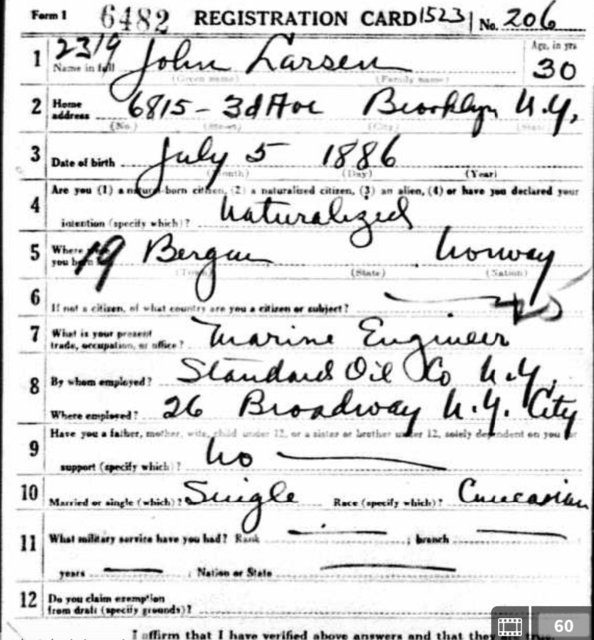 Form 1 6482 REGISTRATION CARD 1523 | No. 206
1 2319 John Larsen Age, in yrs
Name in full (Given name) (Family name) 30
2 Home address 6815 - 3d Ave Brooklyn N.Y.
(No.) (Street) (City) (State)
3 Date of birth July 5 1886
(Month) (Day) (Year)
Are you (1) a natural-born citizen, (2) a naturalized citizen, (3) an alien, (4) or have you declared your
4 intention (specify which)? Naturalized
5 Where were you born? 19 Bergen Norway
(Town) (State) (Nation)
6 If not a citizen, of what country are you a citizen or subject?
7 What is your present trade, occupation, or office? Marine Engineer
8 By whom employed? Standard Oil Co N.Y.
Where employed? 26 Broadway N.Y. City
9 Have you a father, mother, wife, child under 12, or a sister or brother under 12, solely dependent on you for
support (specify which)? No
10 Married or single (which)? Single Race (specify which)? Caucasian
11 What military service have you had? Rank ; branch
years ; Nation or State
12 Do you claim exemption
from draft (specify grounds)?
I affirm that I have verified above answers and that they
60